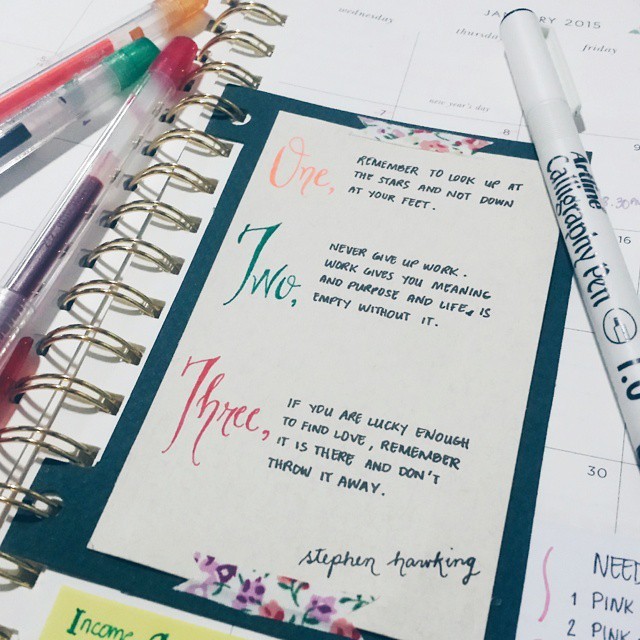 wednesday
thursday
friday
JANUARY 2015
new year's day
7
8
9
16
30
One,
REMEMBER TO LOOK UP AT
THE STARS AND NOT DOWN
AT YOUR FEET.
Two,
NEVER GIVE UP WORK.
WORK GIVES YOU MEANING
AND PURPOSE AND LIFE IS
EMPTY WITHOUT IT.
Three,
IF YOU ARE LUCKY ENOUGH
TO FIND LOVE, REMEMBER
IT IS THERE AND DON'T
THROW IT AWAY.
stephen hawking
Artline
Calligraphy Pen
1.0
NEED
1 PINK
2 PINK
Income